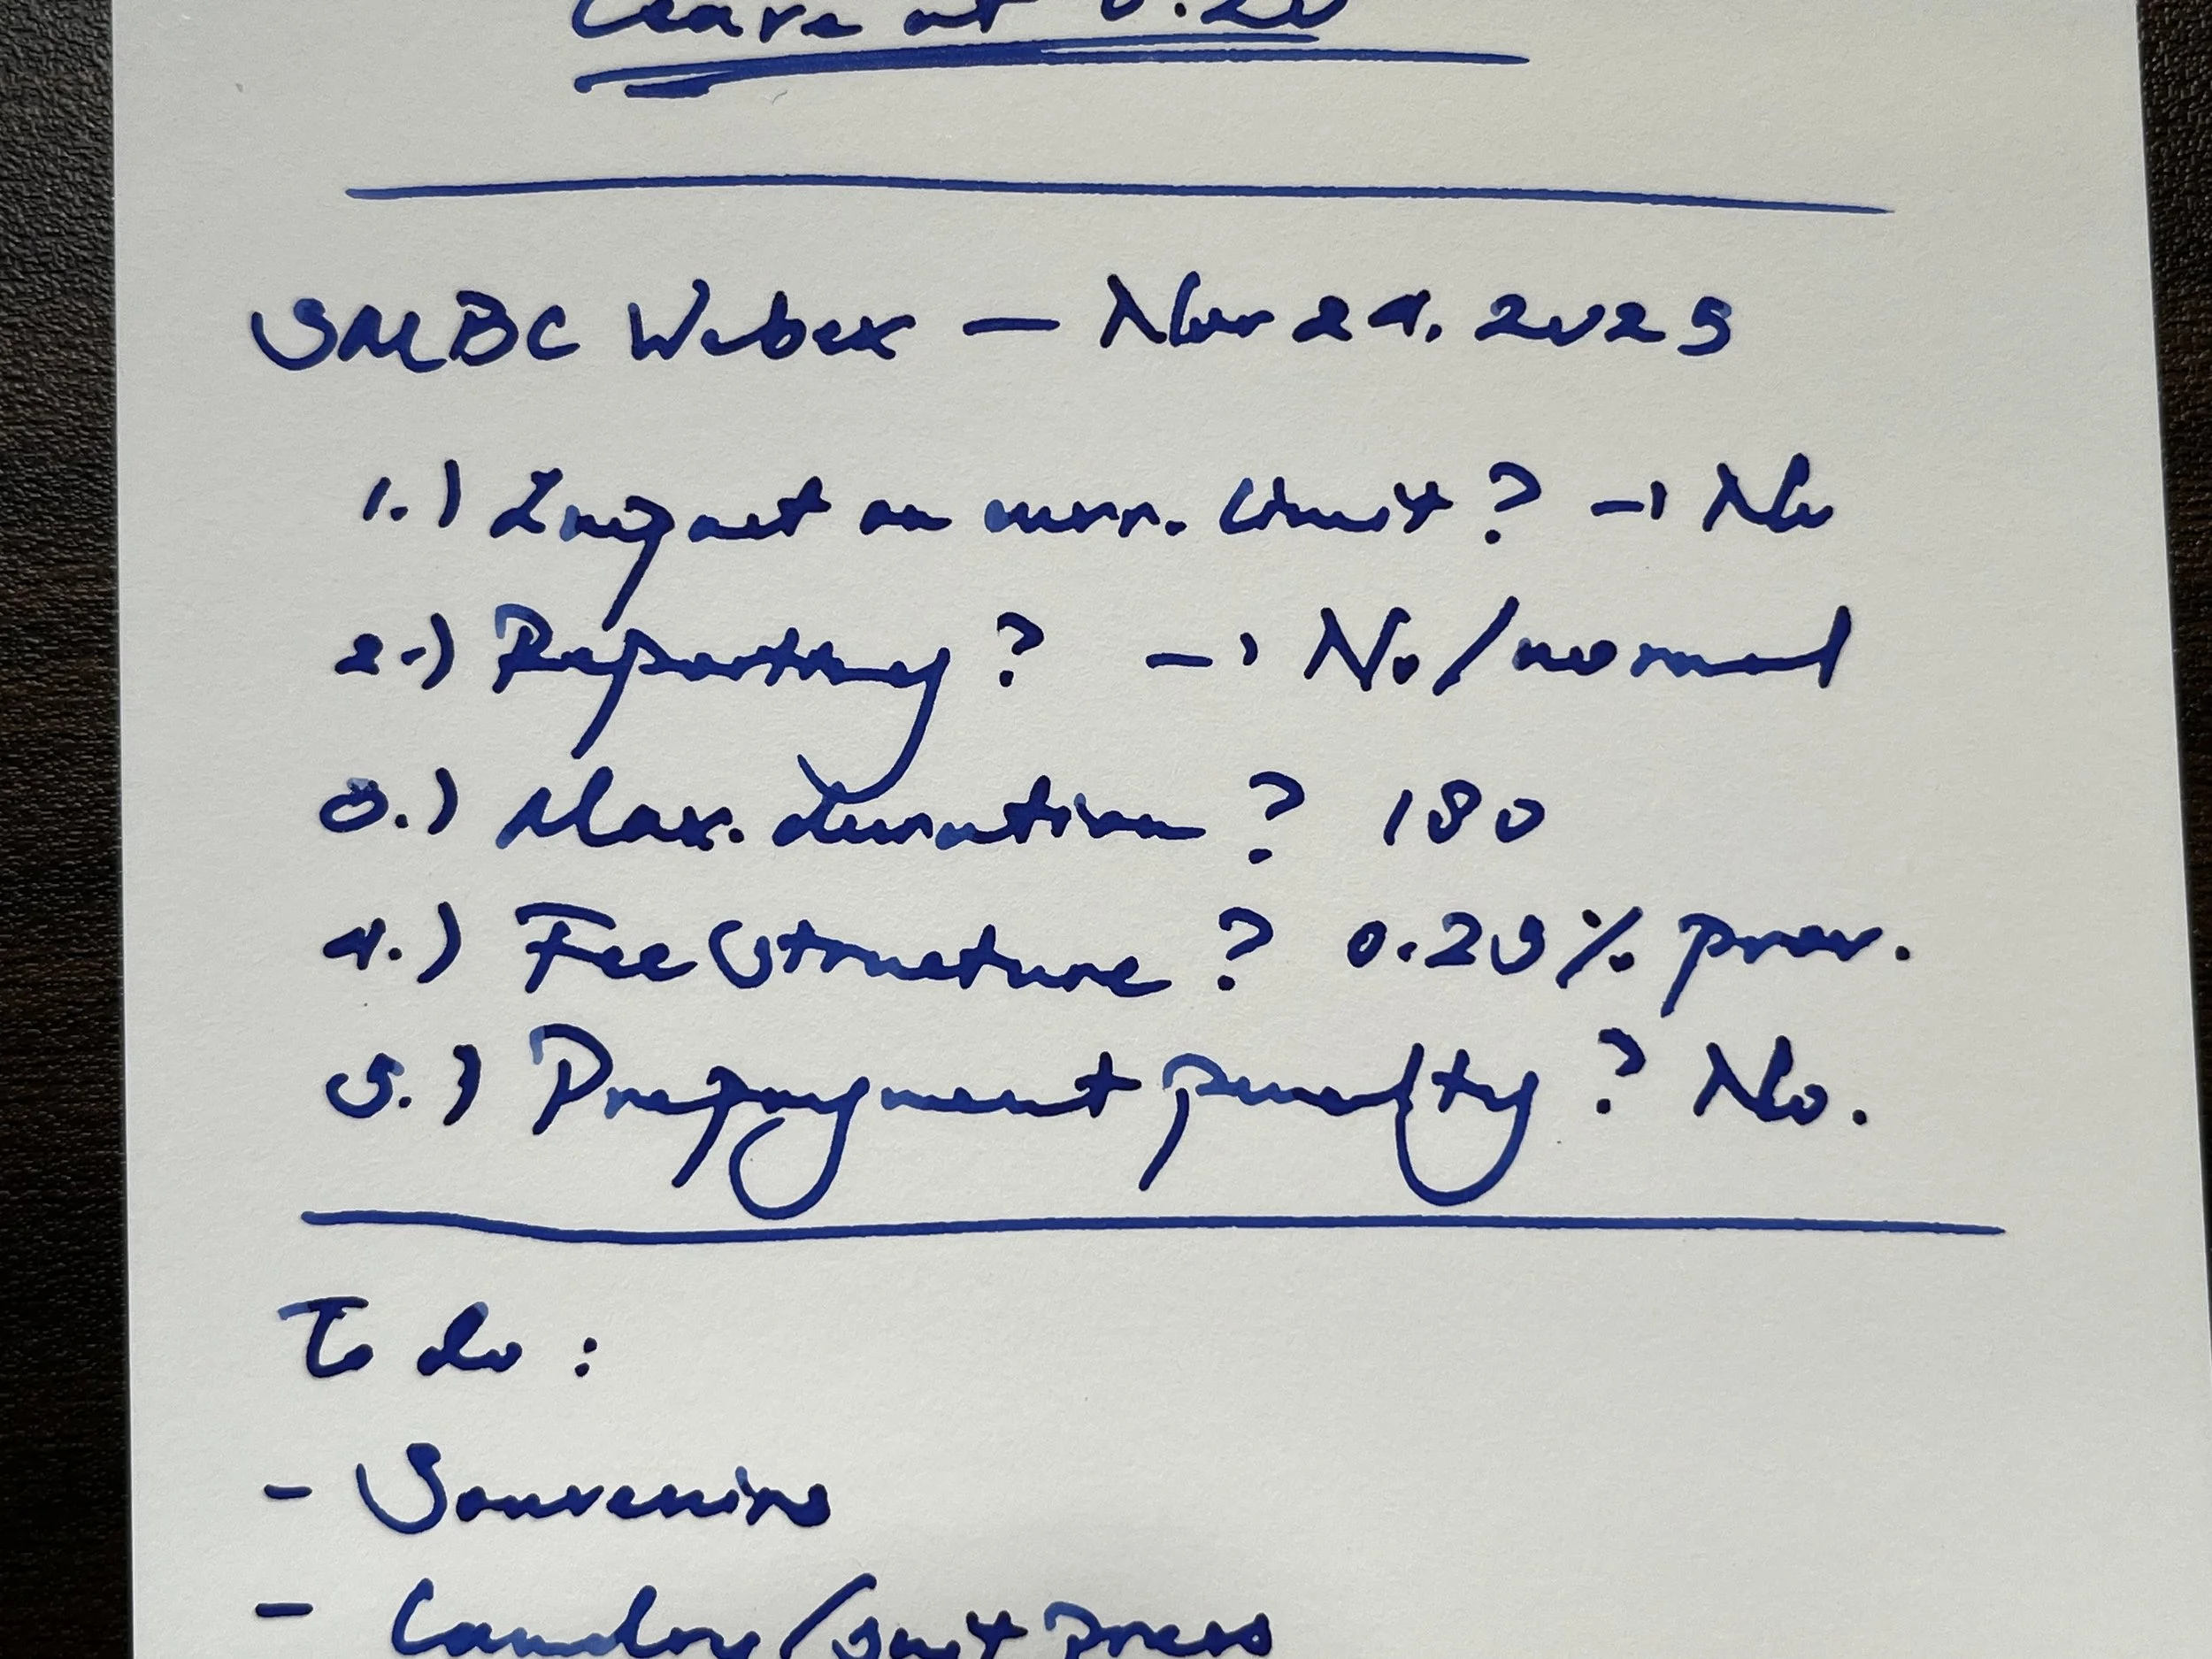 Leave at
SMBC Webex — Nov 24. 2025
1.) Impact on curr. limit? → No
2.) Reporting? → No/normal
3.) Max. duration? 180
4.) Fee Structure? 0.25% prov.
5.) Prepayment penalty? No.
To do:
- Souvenirs
- Laundry/Suit Press